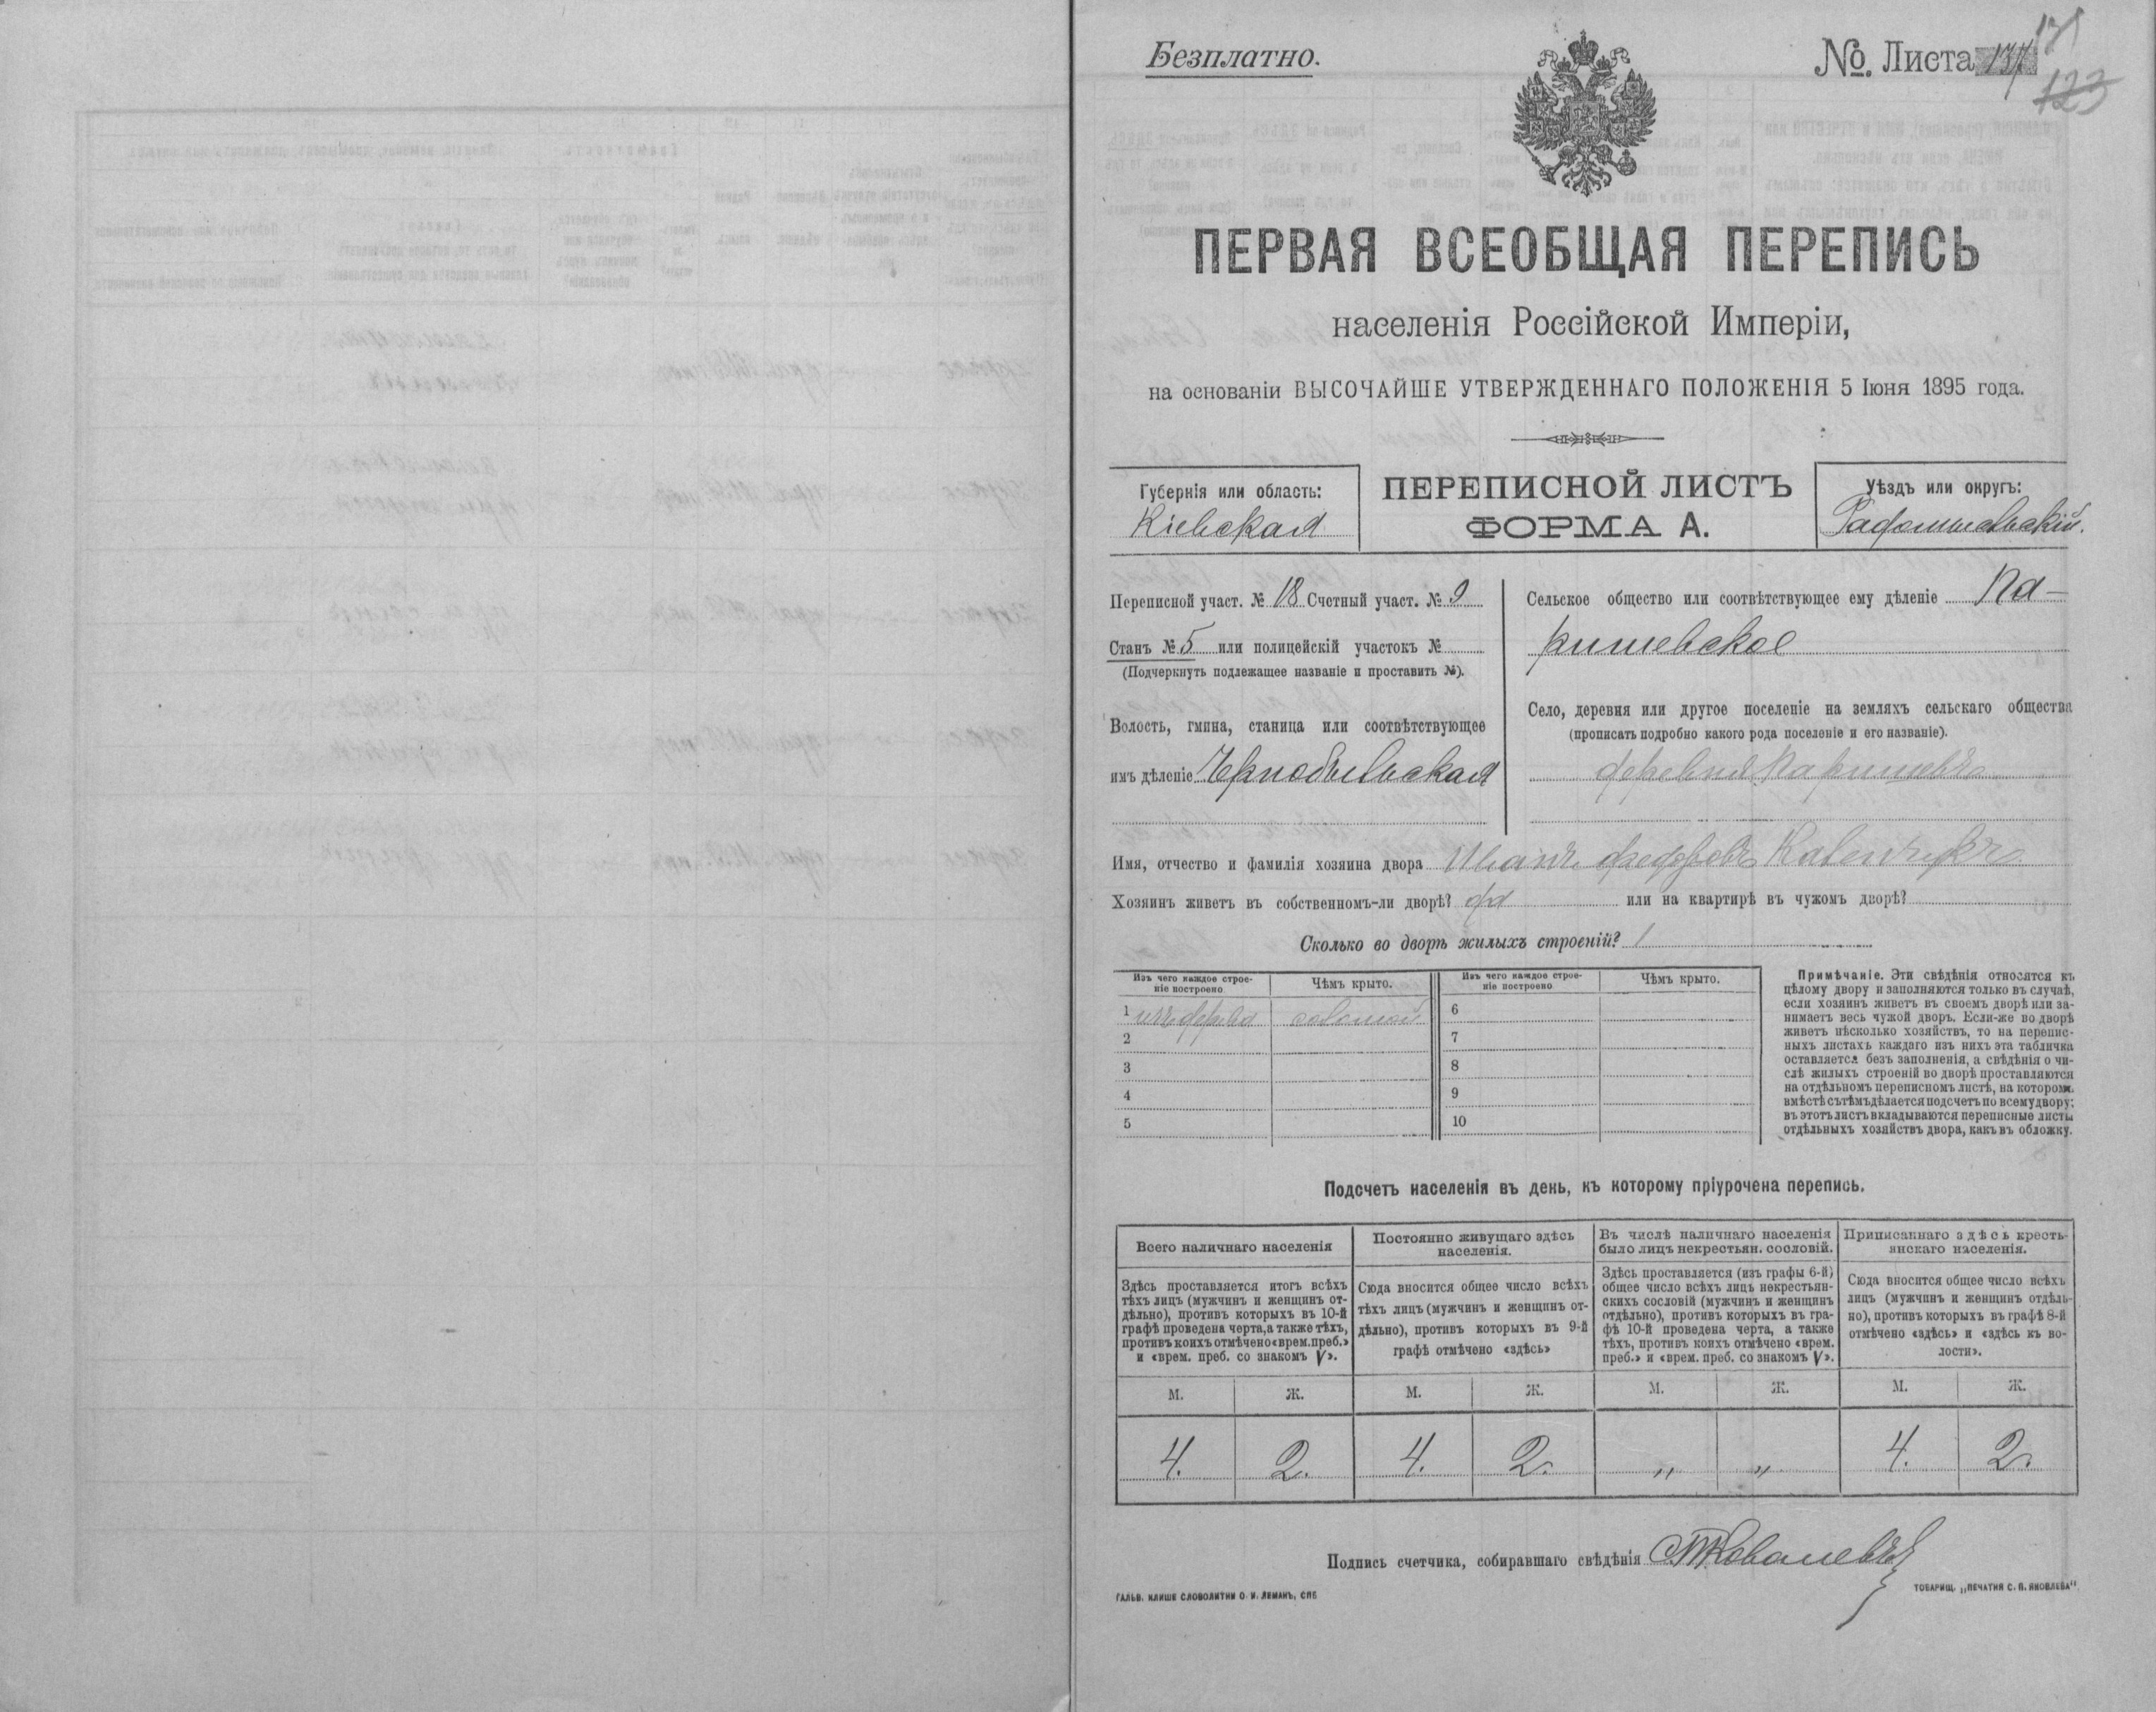 Безплатно.
№. Листа 131
131
123
ПЕРВАЯ ВСЕОБЩАЯ ПЕРЕПИСЬ
населенія Россійской Имперіи,
на основаніи ВЫСОЧАЙШЕ УТВЕРЖДЕННАГО ПОЛОЖЕНІЯ 5 Іюня 1895 года.
Губернія или область:
Кіевская
ПЕРЕПИСНОЙ ЛИСТЪ
ФОРМА А.
Уѣздъ или округъ:
Радомысльскій.
Переписной участ. № 18 Счетный участ. № 9
Станъ № 5 или полицейскій участокъ №
(Подчеркнуть подлежащее названіе и проставить №).
Волость, гмина, станица или соотвѣтствующее
имъ дѣленіе Чернобыльская
Сельское общество или соотвѣтствующее ему дѣленіе Па-
ришевское
Село, деревня или другое поселеніе на земляхъ сельскаго общества
(прописать подробно какого рода поселеніе и его названіе).
деревня Паришевъ
Имя, отчество и фамилія хозяина двора Иванъ Федоровъ
Хозяинъ живетъ въ собственномъ-ли дворѣ? да или на квартирѣ въ чужомъ дворѣ?
Сколько во дворѣ жилыхъ строеній? 1
Изъ чего каждое строе-
ніе построено
Чѣмъ крыто.
Изъ чего каждое строе-
ніе построено
Чѣмъ крыто.
1 изъ дерева соломой
2
3
4
5
6
7
8
9
10
Примѣчаніе. Эти свѣдѣнія относятся къ
цѣлому двору и заполняются только въ случаѣ,
если хозяинъ живетъ въ своемъ дворѣ или за-
нимаетъ весь чужой дворъ. Если-же во дворѣ
живетъ нѣсколько хозяйствъ, то на перепис-
ныхъ листахъ каждаго изъ нихъ эта табличка
оставляется безъ заполненія, а свѣдѣнія о чи-
слѣ жилыхъ строеній во дворѣ проставляются
на отдѣльномъ переписномъ листѣ, на которомъ
вмѣстѣ съ тѣмъ дѣлается подсчетъ по всему двору;
въ этотъ листъ вкладываются переписные листы
отдѣльныхъ хозяйствъ двора, какъ въ обложку.
Подсчетъ населенія въ день, къ которому пріурочена перепись.
Всего наличнаго населенія
Здѣсь проставляется итогъ всѣхъ
тѣхъ лицъ (мужчинъ и женщинъ от-
дѣльно), противъ которыхъ въ 10-й
графѣ проведена черта, а также тѣхъ,
противъ коихъ отмѣчено «врем. преб.»
и «врем. преб. со знакомъ V».
Постоянно живущаго здѣсь
населенія.
Сюда вносится общее число всѣхъ
тѣхъ лицъ (мужчинъ и женщинъ от-
дѣльно), противъ которыхъ въ 9-й
графѣ отмѣчено «здѣсь»
Въ числѣ наличнаго населенія
было лицъ некрестьян. сословій.
Здѣсь проставляется (изъ графы 6-й)
общее число всѣхъ лицъ некрестьян-
скихъ сословій (мужчинъ и женщинъ
отдѣльно), противъ которыхъ въ гра-
фѣ 10-й проведена черта, а также
тѣхъ, противъ коихъ отмѣчено «врем.
преб.» и «врем. преб. со знакомъ V».
Приписаннаго здѣсь кресть-
янскаго населенія.
Сюда вносится общее число всѣхъ
лицъ (мужчинъ и женщинъ отдѣль-
но), противъ которыхъ въ графѣ 8-й
отмѣчено «здѣсь» и «здѣсь къ во-
лости».
М. Ж. М. Ж. М. Ж. М. Ж.
4. 2. 4. 2. „ „ 4. 2.
Подпись счетчика, собиравшаго свѣдѣнія
ГАЛЬВ. КЛИШЕ СЛОВОЛИТНИ О. И. ЛЕМАНЪ, СПБ
ТОВАРИЩ. „ПЕЧАТНЯ С. П. ЯКОВЛЕВА"